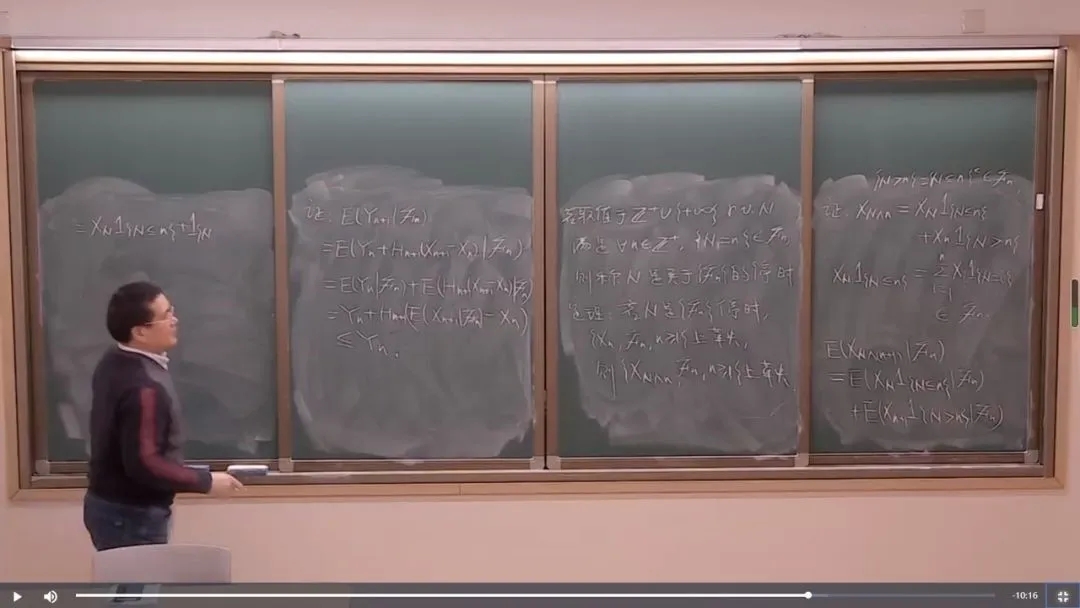 = X_N 1_{N≤n} + 1_{N
证: E(Y_{n+1}|F_n)
= E(Y_n + H_{n+1}(X_{n+1} - X_n)|F_n)
= E(Y_n|F_n) + E(H_{n+1}(X_{n+1} - X_n)|F_n)
= Y_n + H_{n+1}(E(X_{n+1}|F_n) - X_n)
≤ Y_n.
若取值于 Z⁺∪{+∞} r.v. N
满足 ∀n∈Z⁺, {N=n}∈F_n,
则称 N 是关于{F_n}的停时
定理: 若N是{F_n}停时,
{X_n, F_n, n≥1}上鞅,
则{X_{N∧n}, F_n, n≥1}上鞅
{N>n}={N≤n}^c ∈ F_n
证: X_{N∧n} = X_N 1_{N≤n}
+ X_n 1_{N>n}
X_N 1_{N≤n} = Σ_{i=1}^{n} X_i 1_{N=i}
∈ F_n.
E(X_{N∧n+1}|F_n)
= E(X_N 1_{N≤n}|F_n)
+ E(X_{n+1} 1_{N>n}|F_n)
-10:16